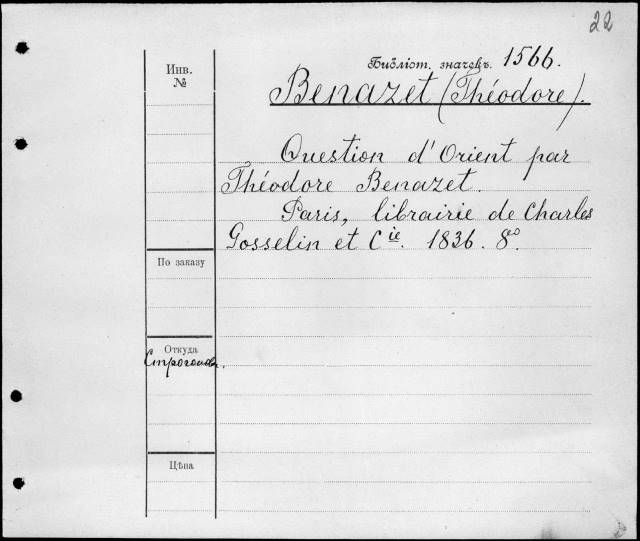 22
Библіот. значекъ. 1566.
Инв.
№
Benazet (Théodore).
Question d'Orient par
Théodore Benazet.
Paris, librairie de Charles
Gosselin et Cie. 1836. 8o.
По заказу
Откуда
Строгонов.
Цѣна